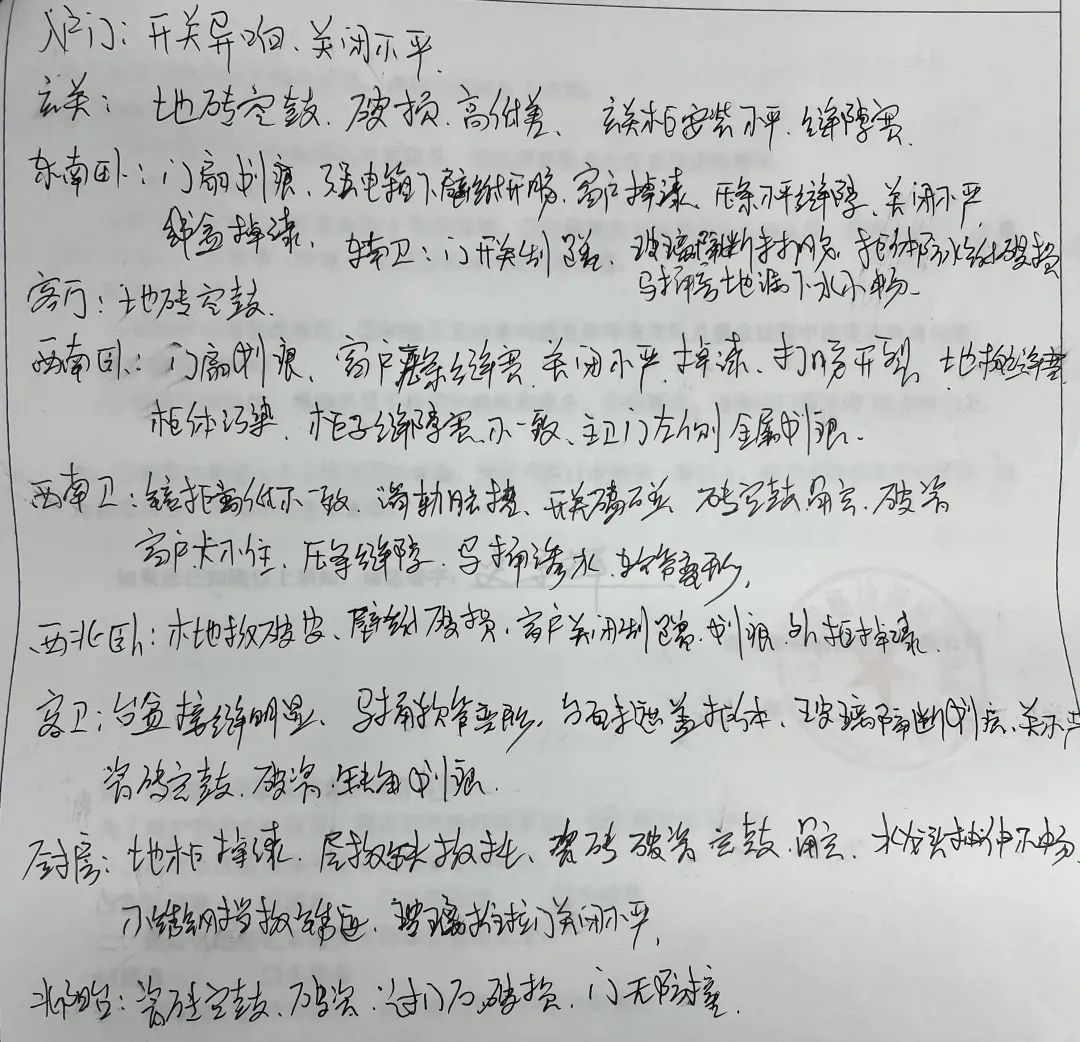 入户门：开关异响、关闭不平.
玄关：地砖空鼓、破损、高低差、玄关柜安装不平、缝隙宽.
东南卧：门扇划痕、强电箱下壁纸开胶、窗户掉漆、压条不平缝隙、关闭不严
线盒掉漆、东南卫：门开关刮蹭、玻璃隔断 柜体防水 破损
马桶 地漏下水不畅
客厅：地砖空鼓.
西南卧：门扇划痕、窗户压条缝宽、关闭不严、掉漆、打胶开裂、地板缝
柜体污染、柜子缝隙宽、不一致、主卫门左侧金属划痕.
西南卫：镜柜高低不一致、 开关磕碰 砖空鼓、崩瓷、破瓷
窗户卡不住、压条缝隙、马桶渗水、软管变形,
西北卧：木地板破皮、壁纸破损、窗户关闭刮蹭、划痕、外框掉漆.
客卫：台盆接缝明显、马桶软管变形、台面 遮盖柜体、玻璃隔断划痕、关不严
瓷砖空鼓、破瓷、缺角划痕.
厨房：地柜掉漆、层板缺 、瓷砖破瓷、空鼓、崩瓷、水龙头抽伸不畅、
不锈钢挡板 、玻璃推拉门关闭不平,
北阳台：瓷砖空鼓、破瓷、过门石破损、门无防撞.